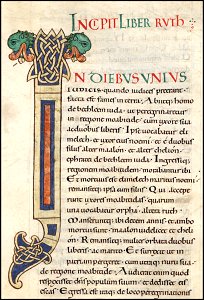 INCIPIT LIBER RUTH
IN DIEBUS UNIUS
iudicis quando iudices preerant
facta est fames in terra. Abiit homo
de bethleem iuda ut peregrinaretur
in regione moabitide cum uxore sua
ac duobus liberis. Ipse vocabatur eli
melech et uxor eius noemi et duobus
filiis alter maalon et alter chelion
ephratei de bethleem iuda. Ingressiq;
regionem moabitidem morabantur ibi.
Et mortuus est elimelech maritus noemi
remansitq; ipsa cum filiis. Qui accepe
runt uxores moabitidas quarum
una vocabatur orpha altera ruth
Manseruntq; ibi decem annis et ambo
mortui sunt maalon videlicet et cheli
on. Remansitq; mulier orbata duobus
liberis ac marito. Et surrexit ut in
patriam pergeret cum utraq; nuru sua
de regione moabitide. Audierat enim quod
respexisset dominus populum suum et dedisset eis
escas. Egressa est de loco peregrinationis